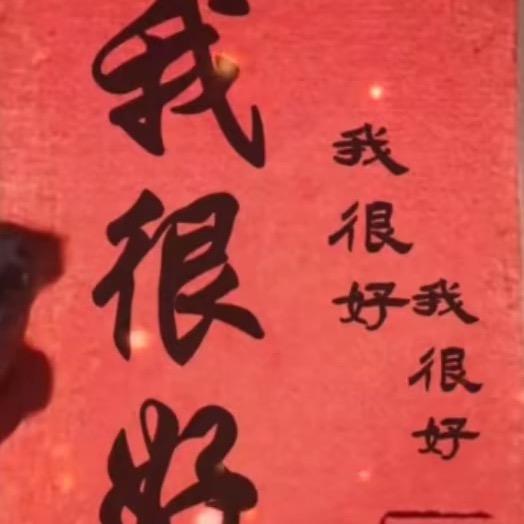 我很好
我很好
我很好